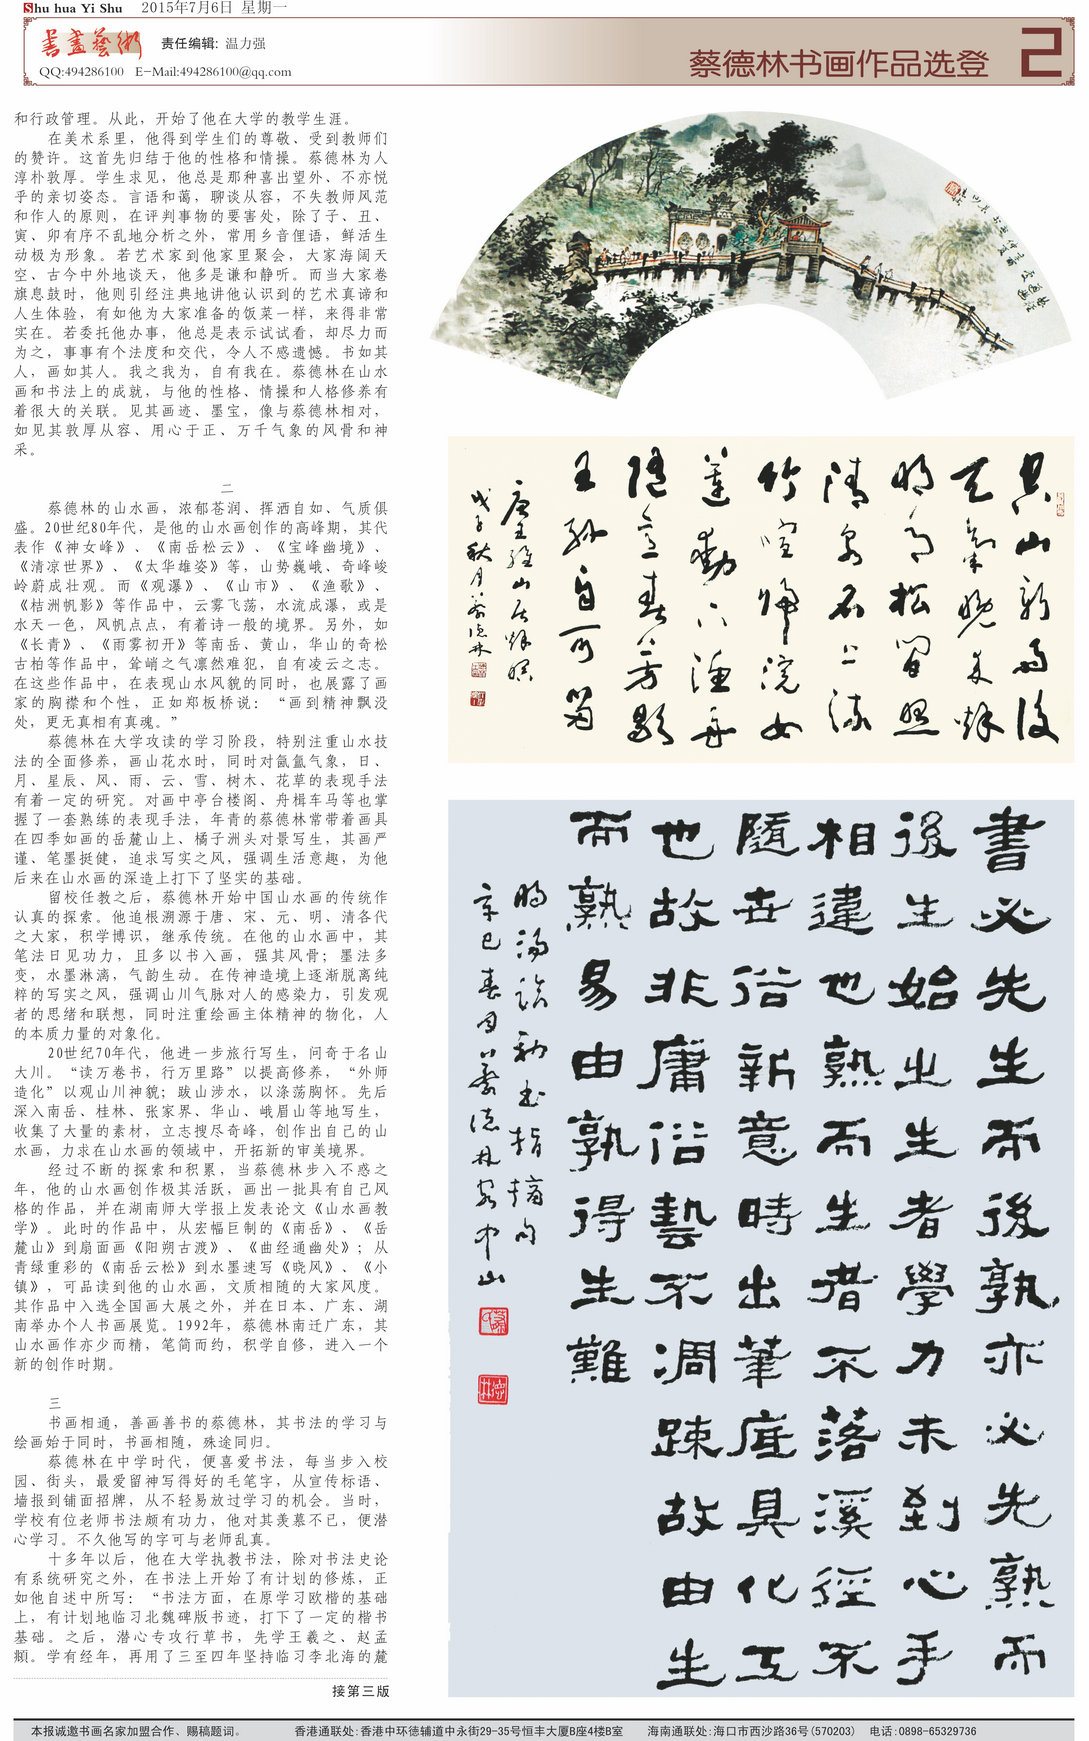 Shu hua Yi Shu 2015年7月6日 星期一
書畫藝術
责任编辑: 温力强
QQ:494286100 E-Mail:494286100@qq.com
蔡德林书画作品选登
2
和行政管理。从此，开始了他在大学的教学生涯。
在美术系里，他得到学生们的尊敬、受到教师们
的赞许。这首先归结于他的性格和情操。蔡德林为人
淳朴敦厚。学生求见，他总是那种喜出望外、不亦悦
乎的亲切姿态。言语和蔼，聊谈从容，不失教师风范
和作人的原则，在评判事物的要害处，除了子、丑、
寅、卯有序不乱地分析之外，常用乡音俚语，鲜活生
动极为形象。若艺术家到他家里聚会，大家海阔天
空、古今中外地谈天，他多是谦和静听。而当大家卷
旗息鼓时，他则引经注典地讲他认识到的艺术真谛和
人生体验，有如他为大家准备的饭菜一样，来得非常
实在。若委托他办事，他总是表示试试看，却尽力而
为之，事事有个法度和交代，令人不感遗憾。书如其
人，画如其人。我之我为，自有我在。蔡德林在山水
画和书法上的成就，与他的性格、情操和人格修养有
着很大的关联。见其画迹、墨宝，像与蔡德林相对，
如见其敦厚从容、用心于正、万千气象的风骨和神
采。
二
蔡德林的山水画，浓郁苍润、挥洒自如、气质俱
盛。20世纪80年代，是他的山水画创作的高峰期，其代
表作《神女峰》、《南岳松云》、《宝峰幽境》、
《清凉世界》、《太华雄姿》等，山势巍峨、奇峰峻
岭蔚成壮观。而《观瀑》、《山市》、《渔歌》、
《桔洲帆影》等作品中，云雾飞荡，水流成瀑，或是
水天一色，风帆点点，有着诗一般的境界。另外，如
《长青》、《雨雾初开》等南岳、黄山，华山的奇松
古柏等作品中，耸峭之气凛然难犯，自有凌云之志。
在这些作品中，在表现山水风貌的同时，也展露了画
家的胸襟和个性，正如郑板桥说：“画到精神飘没
处，更无真相有真魂。”
蔡德林在大学攻读的学习阶段，特别注重山水技
法的全面修养，画山花水时，同时对氤氲气象，日、
月、星辰、风、雨、云、雪、树木、花草的表现手法
有着一定的研究。对画中亭台楼阁、舟楫车马等也掌
握了一套熟练的表现手法，年青的蔡德林常带着画具
在四季如画的岳麓山上、橘子洲头对景写生，其画严
谨、笔墨挺健，追求写实之风，强调生活意趣，为他
后来在山水画的深造上打下了坚实的基础。
留校任教之后，蔡德林开始中国山水画的传统作
认真的探索。他追根溯源于唐、宋、元、明、清各代
之大家，积学博识，继承传统。在他的山水画中，其
笔法日见功力，且多以书入画，强其风骨；墨法多
变，水墨淋漓，气韵生动。在传神造境上逐渐脱离纯
粹的写实之风，强调山川气脉对人的感染力，引发观
者的思绪和联想，同时注重绘画主体精神的物化，人
的本质力量的对象化。
20世纪70年代，他进一步旅行写生，问奇于名山
大川。“读万卷书，行万里路”以提高修养，“外师
造化”以观山川神貌；跋山涉水，以涤荡胸怀。先后
深入南岳、桂林、张家界、华山、峨眉山等地写生，
收集了大量的素材，立志搜尽奇峰，创作出自己的山
水画，力求在山水画的领域中，开拓新的审美境界。
经过不断的探索和积累，当蔡德林步入不惑之
年，他的山水画创作极其活跃，画出一批具有自己风
格的作品，并在湖南师大学报上发表论文《山水画教
学》。此时的作品中，从宏幅巨制的《南岳》、《岳
麓山》到扇面画《阳朔古渡》、《曲经通幽处》；从
青绿重彩的《南岳云松》到水墨速写《晓风》、《小
镇》，可品读到他的山水画，文质相随的大家风度。
其作品中入选全国画大展之外，并在日本、广东、湖
南举办个人书画展览。1992年，蔡德林南迁广东，其
山水画作亦少而精，笔简而约，积学自修，进入一个
新的创作时期。
三
书画相通，善画善书的蔡德林，其书法的学习与
绘画始于同时，书画相随，殊途同归。
蔡德林在中学时代，便喜爱书法，每当步入校
园、街头，最爱留神写得好的毛笔字，从宣传标语、
墙报到铺面招牌，从不轻易放过学习的机会。当时，
学校有位老师书法颇有功力，他对其羡慕不已，便潜
心学习。不久他写的字可与老师乱真。
十多年以后，他在大学执教书法，除对书法史论
有系统研究之外，在书法上开始了有计划的修炼，正
如他自述中所写：“书法方面，在原学习欧楷的基础
上，有计划地临习北魏碑版书迹，打下了一定的楷书
基础。之后，潜心专攻行草书，先学王羲之、赵孟
頫。学有经年，再用了三至四年坚持临习李北海的麓
接第三版
空山新雨後
天氣晚来秋
明月松間照
清泉石上流
竹喧歸浣女
蓮動下漁舟
隨意春芳歇
王孫自可留
唐王維山居秋暝
戊子秋月蔡德林
書必先生而後熟亦必先熟而
後生始出生者學力未到心手
相違也熟而生者不落溪徑不
隨世俗新意時出筆底具化工
也故非庸俗藝不凋疎故由生
而熟易由熟得生難
明湯臨初書指摘句
辛巳春月蔡德林於中山
本报诚邀书画名家加盟合作、赐稿题词。 香港通联处:香港中环德辅道中永街29-35号恒丰大厦B座4楼B室 海南通联处:海口市西沙路36号(570203) 电话:0898-65329736